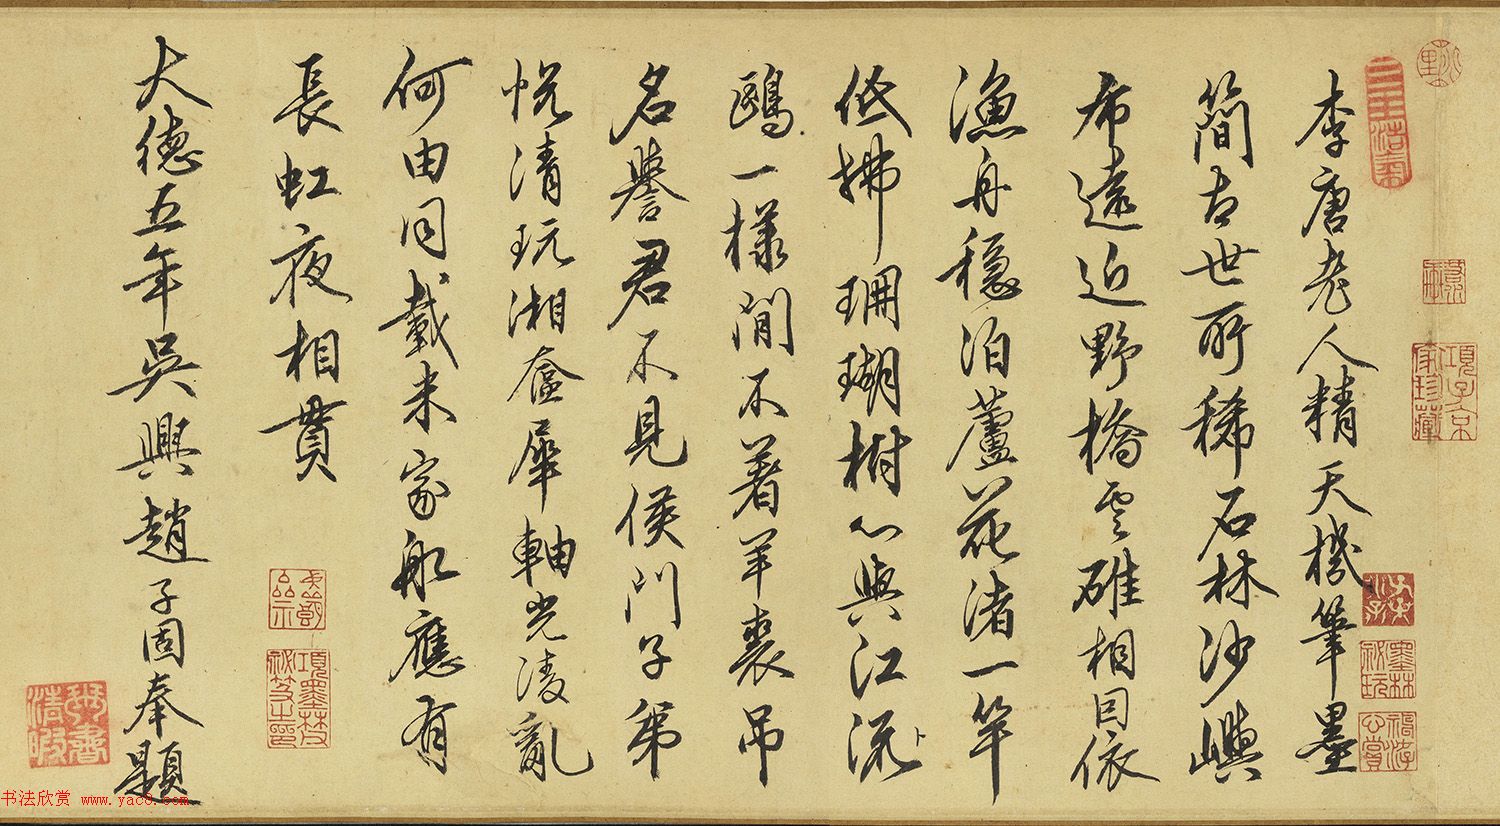 李唐老人精天機筆墨
簡古世所稀石林沙嶼
希遠近野橋雲碓相因依
漁舟穩泊蘆花渚一竿
低拂珊瑚樹心與江流
鷗一樣閒不著羊裘吊
名譽君不見侯門子弟
恱清玩湘奩犀軸光淩亂
何由同載米家船應有
長虹夜相貫
大德五年吳興趙子固奉題
項子京家珍藏
墨林秘玩
項墨林父秘笈之印
书法欣赏 www.yac8.com